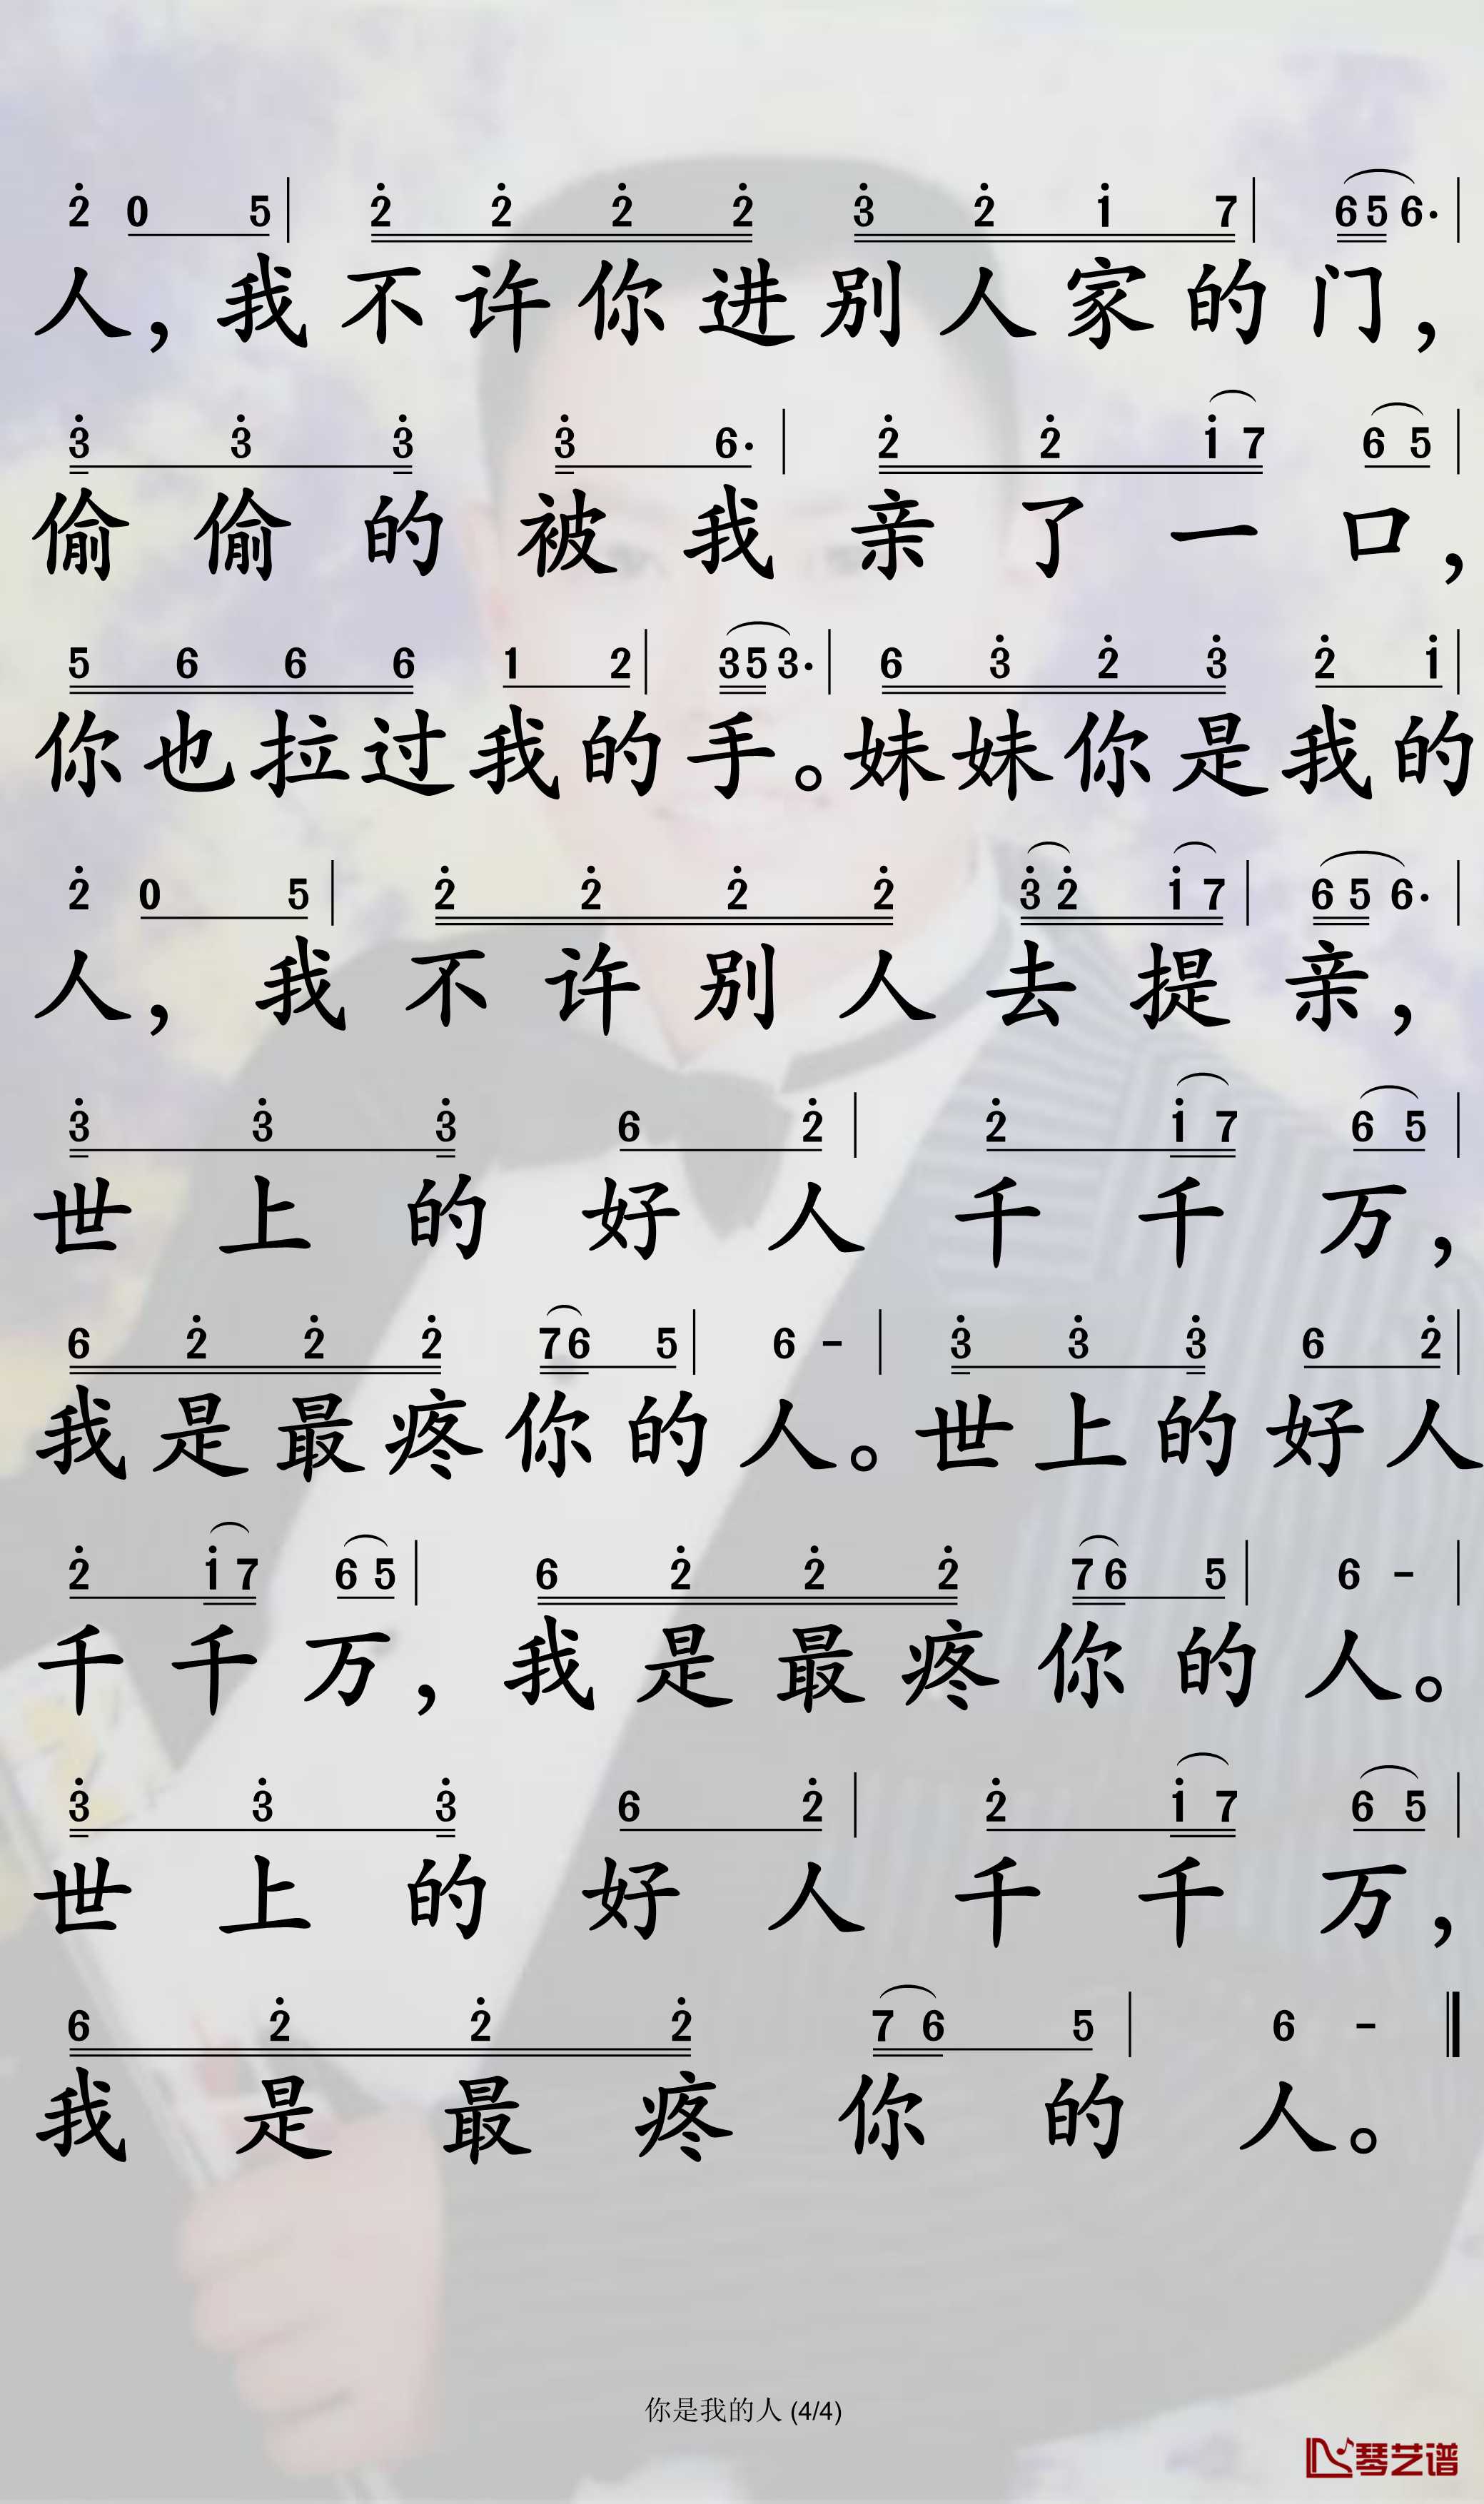 2̇ 0 5 | 2̇ 2̇ 2̇ 2̇ 3̇ 2̇ 1̇ 7 | 6 5 6· |
人，我不许你进别人家的门，
3̇ 3̇ 3̇ 3̇ 6· | 2̇ 2̇ 1̇ 7 6 5 |
偷偷的被我亲了一口，
5 6 6 6 1 2 | 3 5 3· | 6 3̇ 2̇ 3̇ 2̇ 1̇ |
你也拉过我的手。妹妹你是我的
2̇ 0 5 | 2̇ 2̇ 2̇ 2̇ 3̇ 2̇ 1̇ 7 | 6 5 6· |
人，我不许别人去提亲，
3̇ 3̇ 3̇ 6 2̇ | 2̇ 1̇ 7 6 5 |
世上的好人千千万，
6 2̇ 2̇ 2̇ 7 6 5 | 6 - | 3̇ 3̇ 3̇ 6 2̇ |
我是最疼你的人。世上的好人
2̇ 1̇ 7 6 5 | 6 2̇ 2̇ 2̇ 7 6 5 | 6 - |
千千万，我是最疼你的人。
3̇ 3̇ 3̇ 6 2̇ | 2̇ 1̇ 7 6 5 |
世上的好人千千万，
6 2̇ 2̇ 2̇ 7 6 5 | 6 - ‖
我是最疼你的人。
你是我的人 (4/4)
琴艺谱